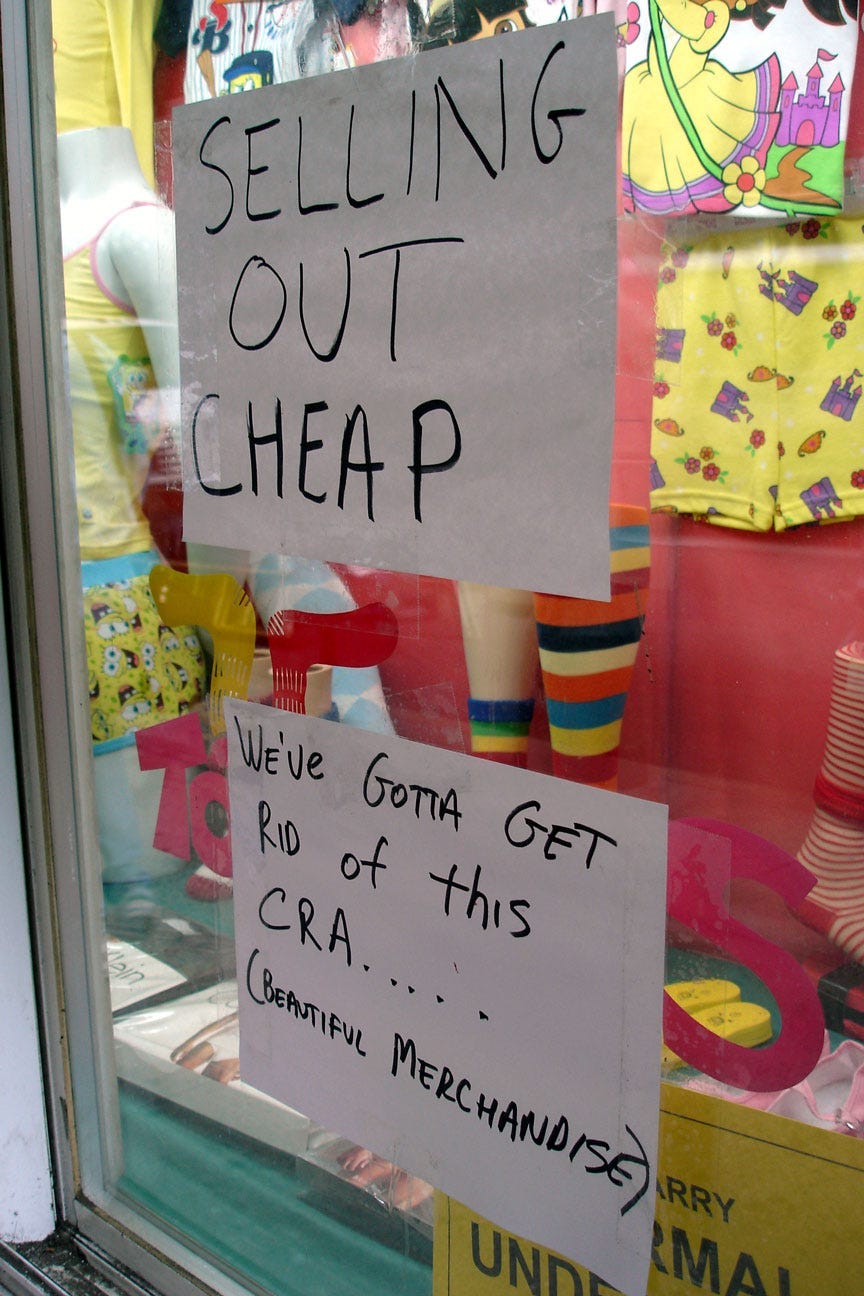 SELLING
OUT
CHEAP
WE'VE GOTTA GET
RID of this
CRA.....
(BEAUTIFUL MERCHANDISE)
TO
S
lein
ARRY
UNDE RMAL